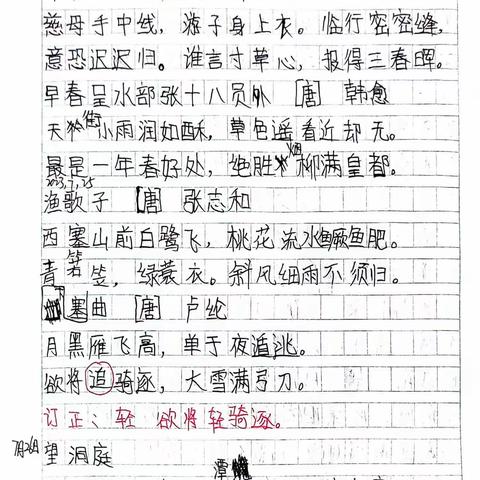 慈母手中线，游子身上衣。临行密密缝，
意恐迟迟归。谁言寸草心，报得三春晖。
早春呈水部张十八员外 [唐] 韩愈
天街小雨润如酥，草色遥看近却无。
最是一年春好处，绝胜烟柳满皇都。
2023,7,25
渔歌子 [唐] 张志和
西塞山前白鹭飞，桃花流水鳜鱼肥。
青箬笠，绿蓑衣。斜风细雨不须归。
塞曲 [唐] 卢纶
月黑雁飞高，单于夜遁逃。
欲将追骑逐，大雪满弓刀。
订正：轻 欲将轻骑逐。
7月26日
望洞庭
潭